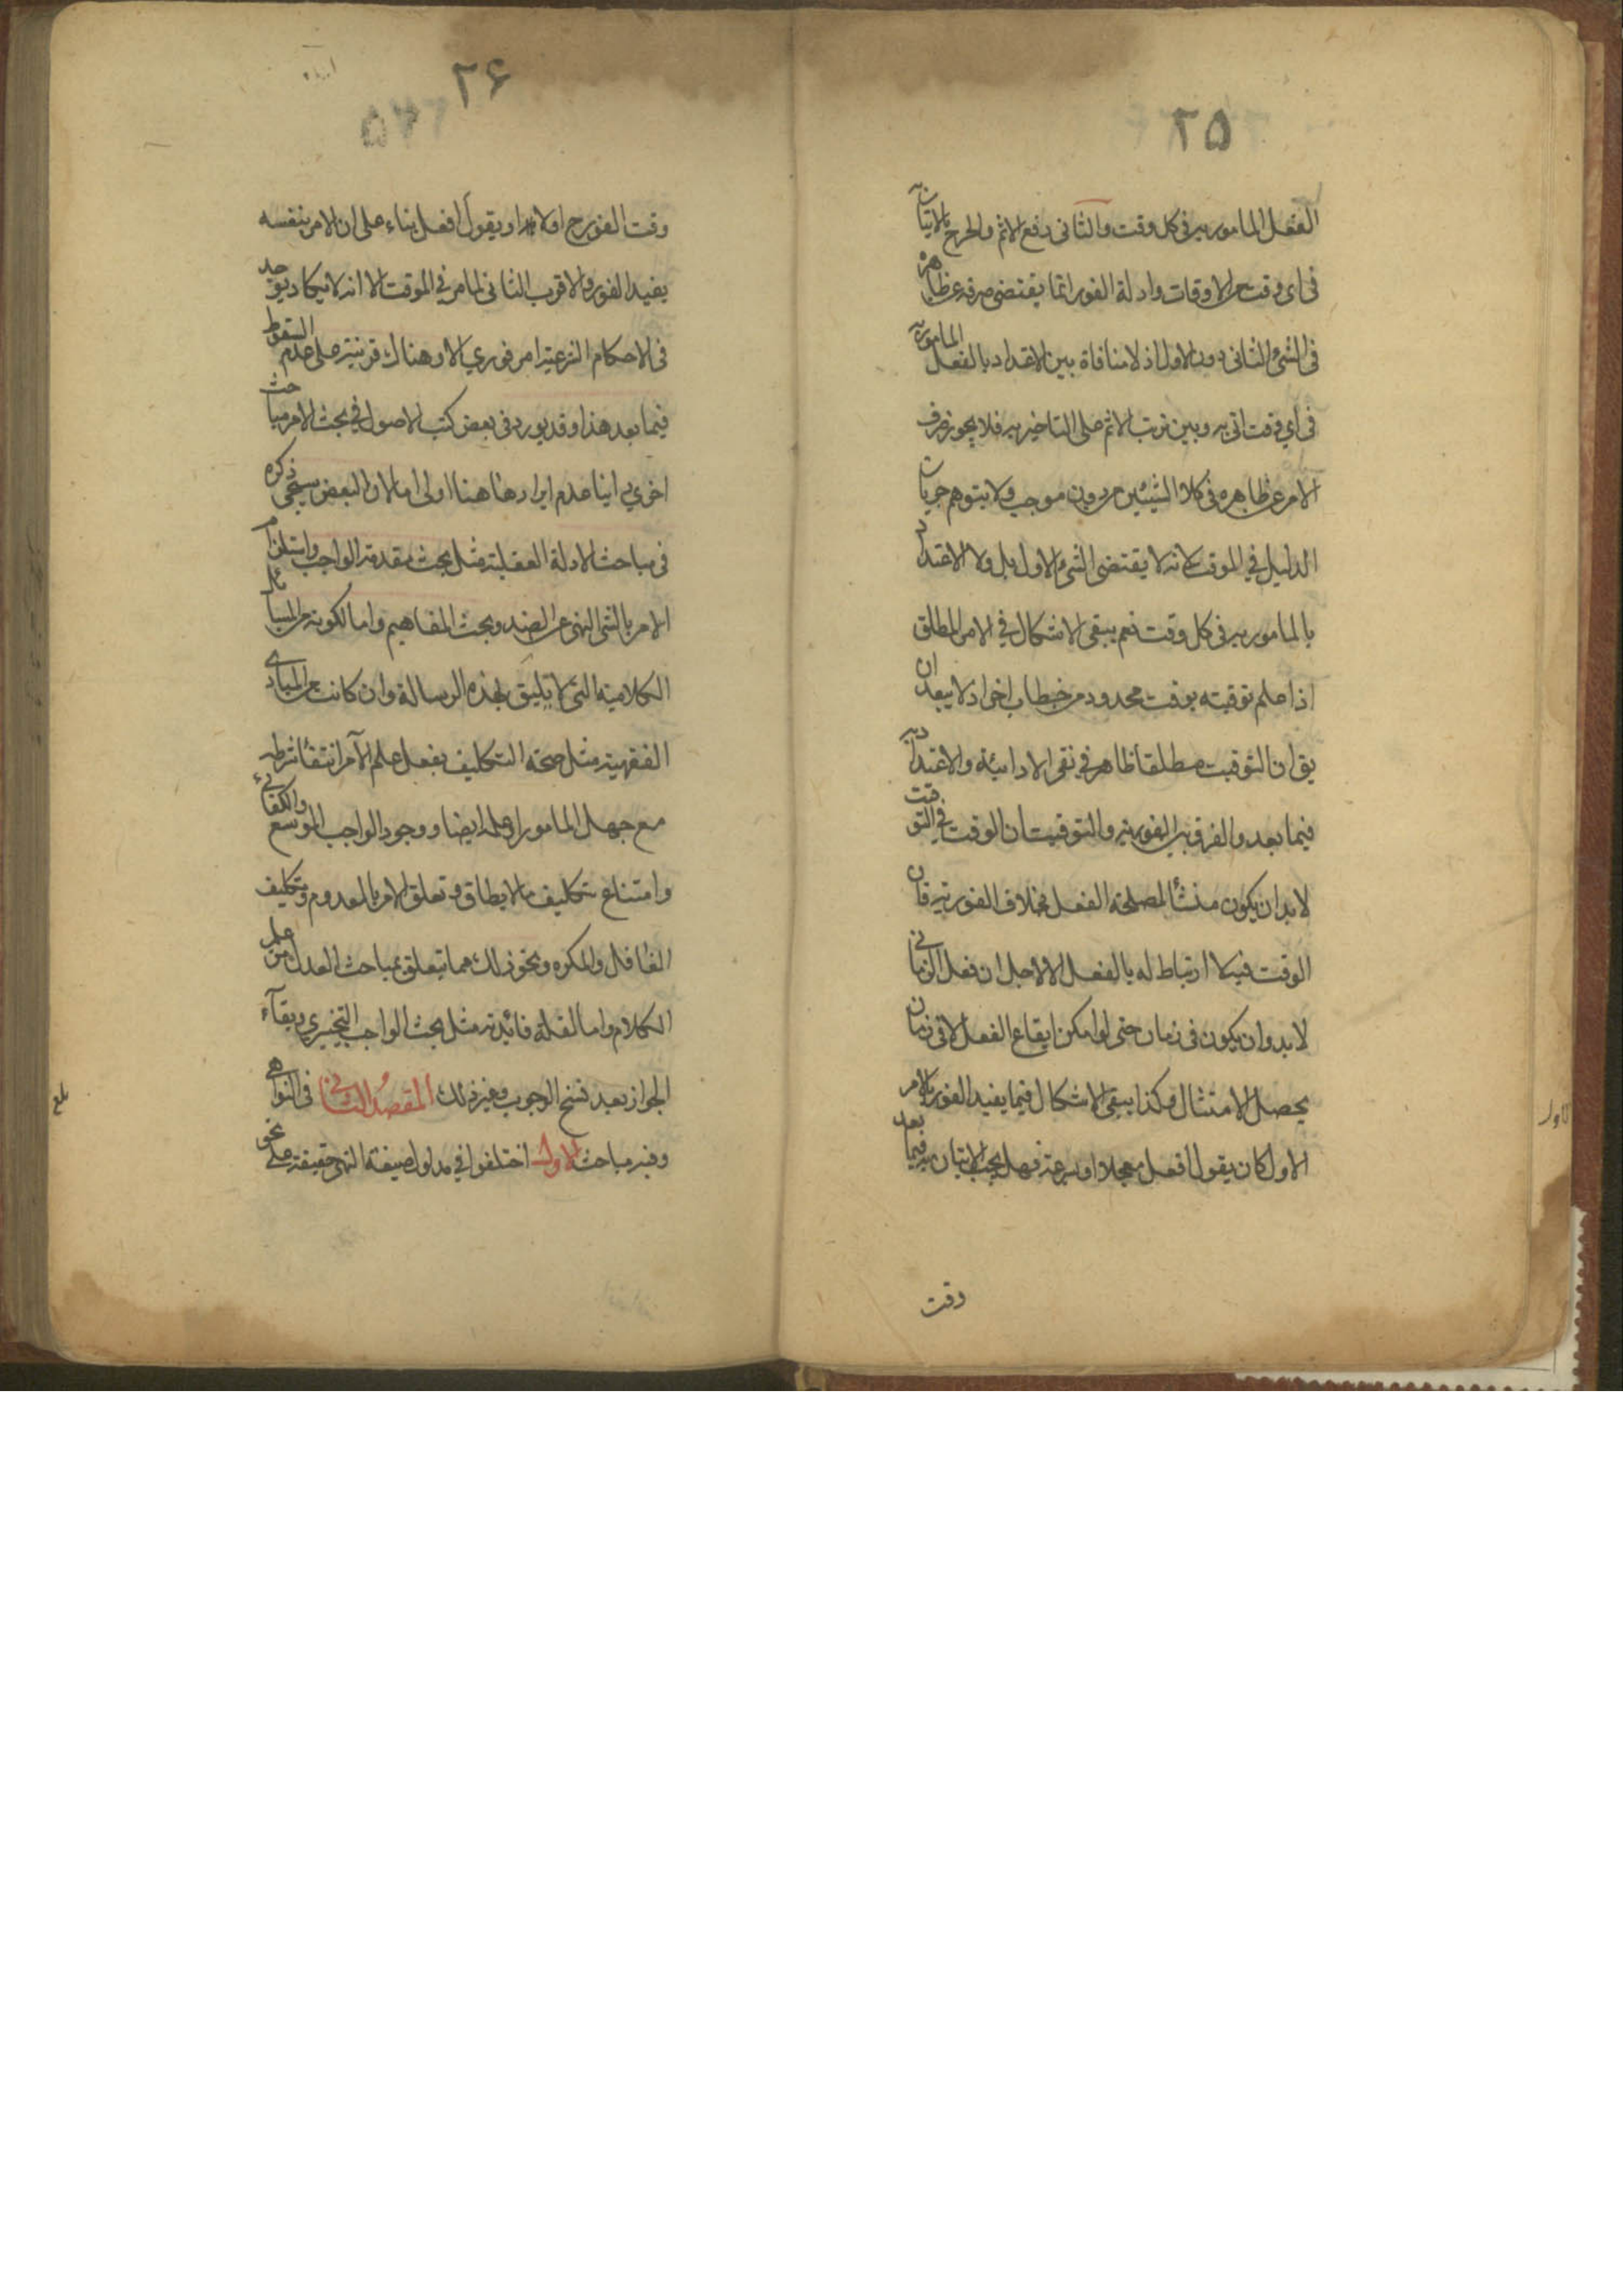 ٢٥
الفعل المامور به في كل وقت والثاني دفع الاثم والحرج بالاتيان به
في اي وقت من الاوقات وادلة الفور انما يقتضي صرفه عن ظاهره
في الشئ الثاني دون الاول اذ لا منافاة بين الاعتداد بالفعل المامور به
في اي وقت اتى به وبين ترتب الاثم على التاخير به فلا يجوز صرف
الامر عن ظاهره في كلا الشيئين من دون موجب ولا يتوهم جريان
الدليل في الموقت لانه لا يقتضي الشئ الاول بل ولا الاعتداد
بالمامور به في كل وقت نعم يبقى الاشكال في الامر المطلق
اذا علم توقيته بوقت محدود من خطاب اخر اذ لا يبعد ان
يق ان التوقيت مطلقا ظاهر في نفي الاداء والاعتداد به
فيما بعده والفرق بين الفورية والتوقيت ان الوقت في التوقيت
لا بد ان يكون منشأ لمصلحة الفعل بخلاف الفورية فان
الوقت فيه لا ارتباط له بالفعل الا لاجل ان فعل الزماني
لا بد وان يكون في زمان حتى لو امكن ايقاع الفعل لا في زمان
يحصل الامتثال وكذا يبقى الاشكال فيما يفيد الفور بالامر
الاول كان يقول افعل معجلا او بسرعة فهل يجب الاتيان به فيما بعد
وقت
٢۶
وقت الفور ح او لا او يقول افعل بناء على ان الامر بنفسه
يفيد الفور والاقرب الثاني لما مر في الموقت الا انه لا يكاد يوجد
في الاحكام الشرعية امر فوري الا وهناك قرينة على عدم السقوط
فيما بعد هذا وقد يورد في بعض كتب الاصول في بحث الامر مباحث
اخرى راينا عدم ايرادها هنا اولى اما لان البعض سيجئ ذكره
في مباحث الادلة العقلية مثل بحث مقدمة الواجب واستلزام
الامر بالشئ النهي عن الضد وبحث المفاهيم واما لكونه من المسائل
الكلامية التي لا يليق بهذه الرسالة وان كانت من المبادي
الفقهية مثل صحة التكليف بفعل علم الآمر انتفاء شرطه
مع جهل المامور او علمه ايضا ووجود الواجب الموسع والكفائي
وامتناع تكليف ما لا يطاق وتعلق الامر بالمعدوم وتكليف
الغافل والمكره ونحو ذلك مما يتعلق بمباحث العدل من علم
الكلام واما لقلة فائدته مثل بحث الواجب التخييري وبقاء
الجواز بعد نسخ الوجوب وغير ذلك المقصد الثاني في النواهي
وفيه مباحث الاول اختلفوا في مدلول صيغة النهي حقيقة على نحو
بلغ